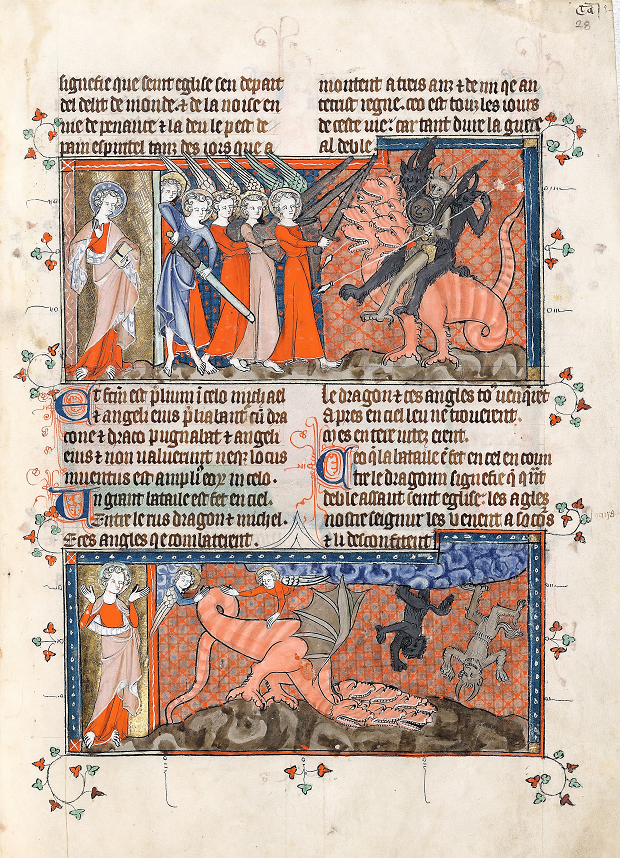 signefie que seint eglise sen depart
del delit de monde ⁊ de la noise en
uie de penance ⁊ la deu le pest de
pain espiritel tanz des iors que a
montent a treis anz ⁊ demi qe an
tecrist regne. ceo est touz les iours
de ceste uie: car tant dure la guere
al deble.
Et factum est prelium in celo michael
⁊ angeli eius preliabantur cum dra
cone ⁊ draco pugnabat ⁊ angeli
eius ⁊ non ualuerunt neque locus
inuentus est amplius eorum in celo.
Un grant bataile est fet en ciel.
Entre le rus dragon ⁊ michel.
E ces angles qe combateient.
le dragon ⁊ ces angles
apres en ciel leu ne troueient.
en tere
Ceo qe la bataile est fet en ciel en countre
le dragoun signefie qe quant
deble assaut seint eglise: les agles
nostre seignur les uenent a socours
⁊ li desconfitent
28